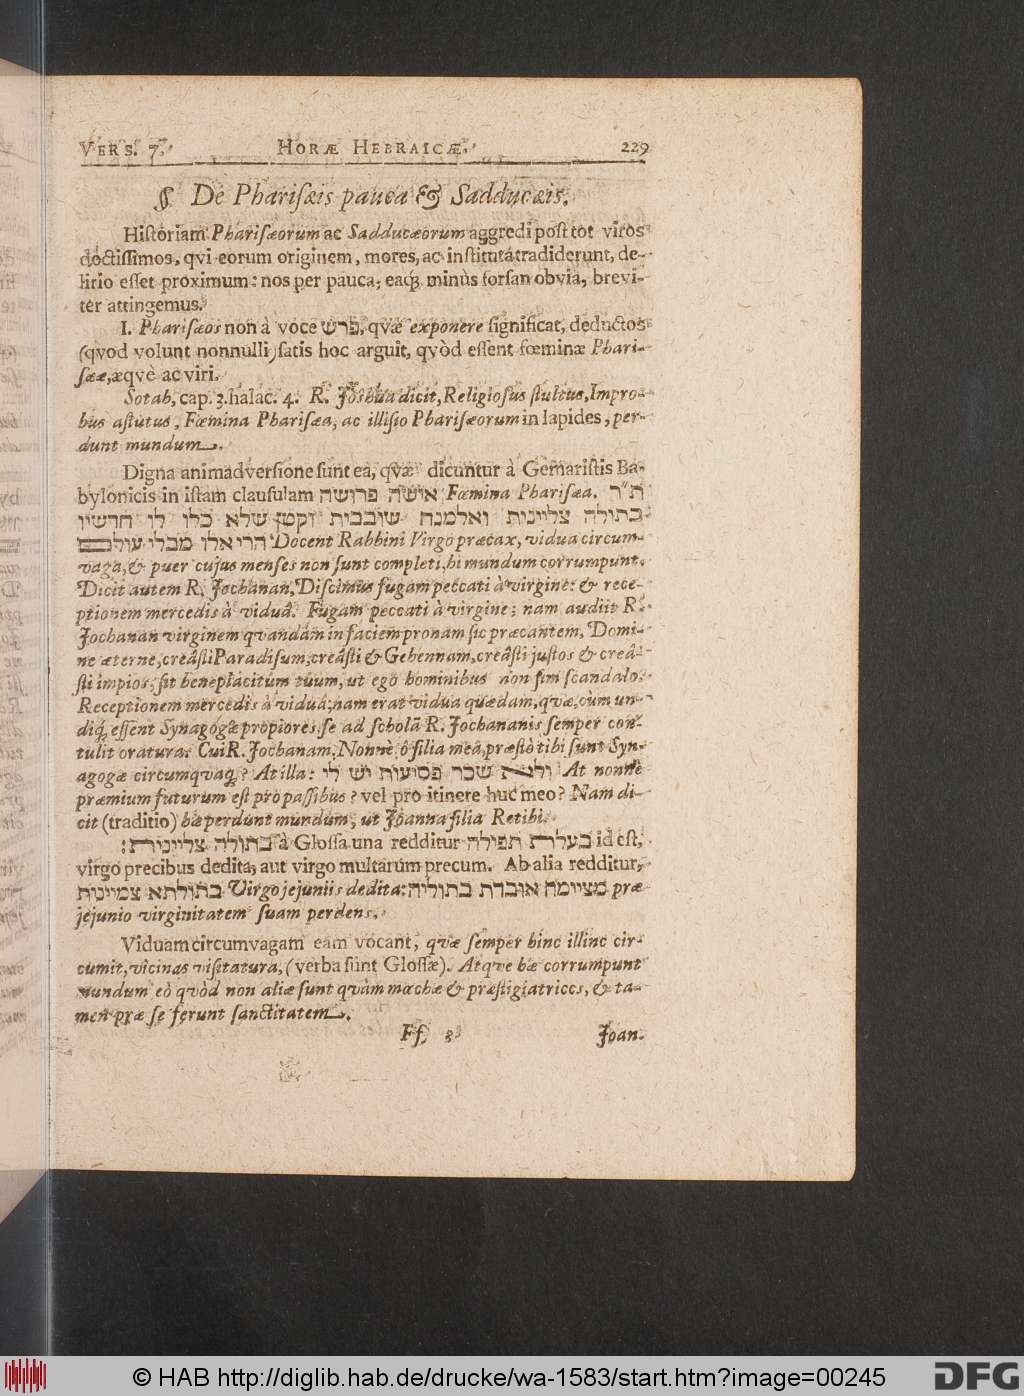 VERS. 7. HORÆ HEBRAICÆ. 229
§. De Pharisæis pauca & Sadducæis.
Historiam Pharisæorum ac Sadducæorum aggredi post tot viros
doctissimos, qvi eorum originem, mores, ac instituta tradiderunt, de-
lirio esset proximum: nos per pauca, eaq; minùs forsan obvia, brevi-
ter attingemus.
I. Pharisæos non à voce פרש, qvæ exponere significat, deductos
(qvod volunt nonnulli) satis hoc arguit, qvòd essent fœminæ Phari-
sææ, æqvè ac viri.
Sotah, cap. 3. halac. 4. R. Joshua dicit, Religiosus stultus, Impro-
bus astutus, Fœmina Pharisæa, ac illisio Pharisæorum in lapides, per-
dunt mundum.
Digna animadversione sunt ea, qvæ dicuntur à Gemaristis Ba-
bylonicis in istam clausulam אושה פרושה Fœmina Pharisæa. ת״ר
בתולה צליינית ואלמנה שובבית וקטן שלא כלו לו חדשיו
הרי אלו מבלי עולם Docent Rabbini Virgo præcax, vidua circum-
vaga, & puer cujus menses non sunt completi, hi mundum corrumpunt.
Dicit autem R. Jochanan, Discimus fugam peccati à virgine: & rece-
ptionem mercedis à viduâ. Fugam peccati à virgine; nam audiit R.
Jochanan virginem qvandam in faciem pronam sic præcantem, Domi-
ne æterne, creâsti Paradisum, creâsti & Gehennam, creâsti justos & creâ-
sti impios, sit beneplacitum tuum, ut ego hominibus non sim scandalo.
Receptionem mercedis à viduâ; nam erat vidua quædam, qvæ, cùm un-
diq; essent Synagogæ propiores, se ad scholã R. Jochananis semper con-
tulit oratura: Cui R. Jochanam, Nonne ô filia mea, præstò tibi sunt Syn-
agogæ circumqvaq;? At illa: ולא שכר פסיעות יש לי At nonne
præmium futurum est pro passibus? vel pro itinere huc meo? Nam di-
cit (traditio) hæ perdunt mundum, ut Joanna filia Retibi.
בתולה צליינית: à Glossa una redditur בעלת תפילה id est,
virgo precibus dedita, aut virgo multarum precum. Ab alia redditur,
בתולתא צמיינית Virgo jejuniis dedita: מציומה אובדת בתוליה præ
jejunio virginitatem suam perdens.
Viduam circumvagam eam vocant, qvæ semper hinc illinc cir-
cumit, vicinas visitatura, (verba sunt Glossæ). Atqve hæ corrumpunt
mundum eò qvòd non aliæ sunt qvàm mœchæ & præstigiatrices, & ta-
men præ se ferunt sanctitatem.
Ff 3 Joan-
© HAB http://diglib.hab.de/drucke/wa-1583/start.htm?image=00245 DFG